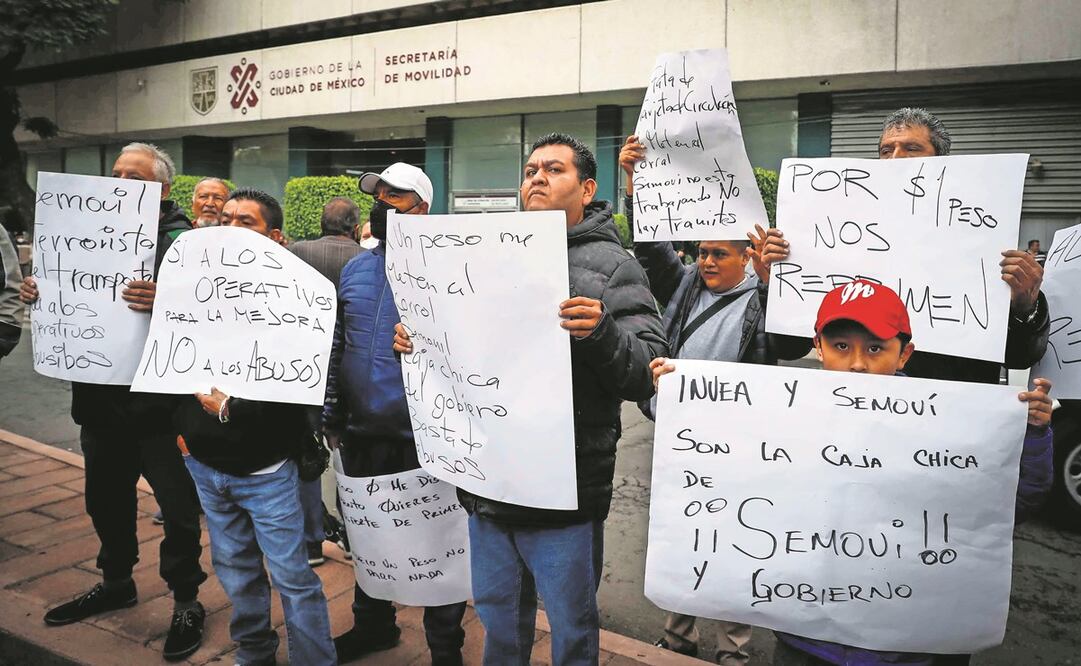 GOBIERNO DE LA
CIUDAD DE MÉXICO
SECRETARÍA
DE MOVILIDAD
Semovil
Terrorista
del transporte
operativos
SI A LOS
OPERATIVOS
PARA LA MEJORA
NO A LOS ABUSOS
Un peso me
Meten al
corral
Semovil
caja chica
del gobierno
Basta de
abusos
QUIERES
DE PRIMER
UN PESO NO
PARA NADA
Falta de
tarjeta de Circulación
Meten al
corral
Semovi no esta
trabajando No
hay tramites
POR $1 PESO
NOS
REPRIMEN
INVEA Y SEMOVÍ
SON LA CAJA CHICA
DE
¡¡SEMOVI!!
Y GOBIERNO